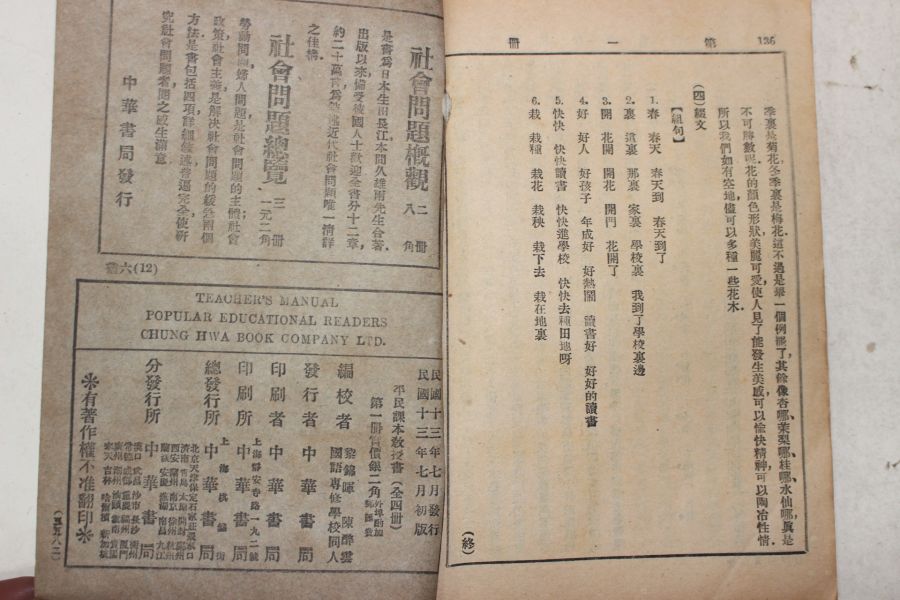 第一冊
136
季裏是菊花,冬季裏是梅花.這不過是舉一個例罷了,其餘像杏哪,茉梨哪,桂哪,水仙哪,眞是
不可勝數呢.花的顏色形狀,美麗可愛,使人見了,能發生美感,可以愉快精神,可以陶冶性情.
所以我們如有空地,儘可以多種一些花木.
(四)綴文
【組句】
1. 春 春天 春天到了 春天到了
2. 裏 這裏 那裏 家裏 學校裏 我到了學校裏邊
3. 開 花開 開花 開門 花開了
4. 好 好人 好孩子 年成好 好熱鬧 讀書好 好好的讀書
5. 快快 快快讀書 快快進學校 快快去種田地呀
6. 栽 栽種 栽花 栽秧 栽下去 栽在地裏
(終)
社會問題概觀 二冊 八角
是書爲日本生田長江,本間久雄兩先生合著.
出版以來,備受彼國人士歡迎.全書分十二章,
約二十萬言,爲
近代社會問題唯一清詳
之佳構.
社會問題總覽 三冊 一元二角
勞動問題,婦人問題,是社會問題的主體;社會
政策,社會主義,是解決社會問題的緩急兩個
方法.是書包括四項,詳細敘述,普遍完全,使硏
究社會問題者閱之,
生滿意
中華書局發行
(12)六
TEACHER'S MANUAL
POPULAR EDUCATIONAL READERS
CHUNG HWA BOOK COMPANY LTD.
民國十三年七月發行
民國十三年七月初版
平民課本教授書(全四冊)
第一冊實價銀二角
外埠酌加郵匯費
編校者 黎錦暉 陳醉雲
國語專修學校同人
發行者 中華書局
印刷者 中華書局
印刷所 上海靜安寺路一九二號 中華書局
總發行所 上海棋盤街 中華書局
分發行所 中華書局
※有著作權不准翻印※